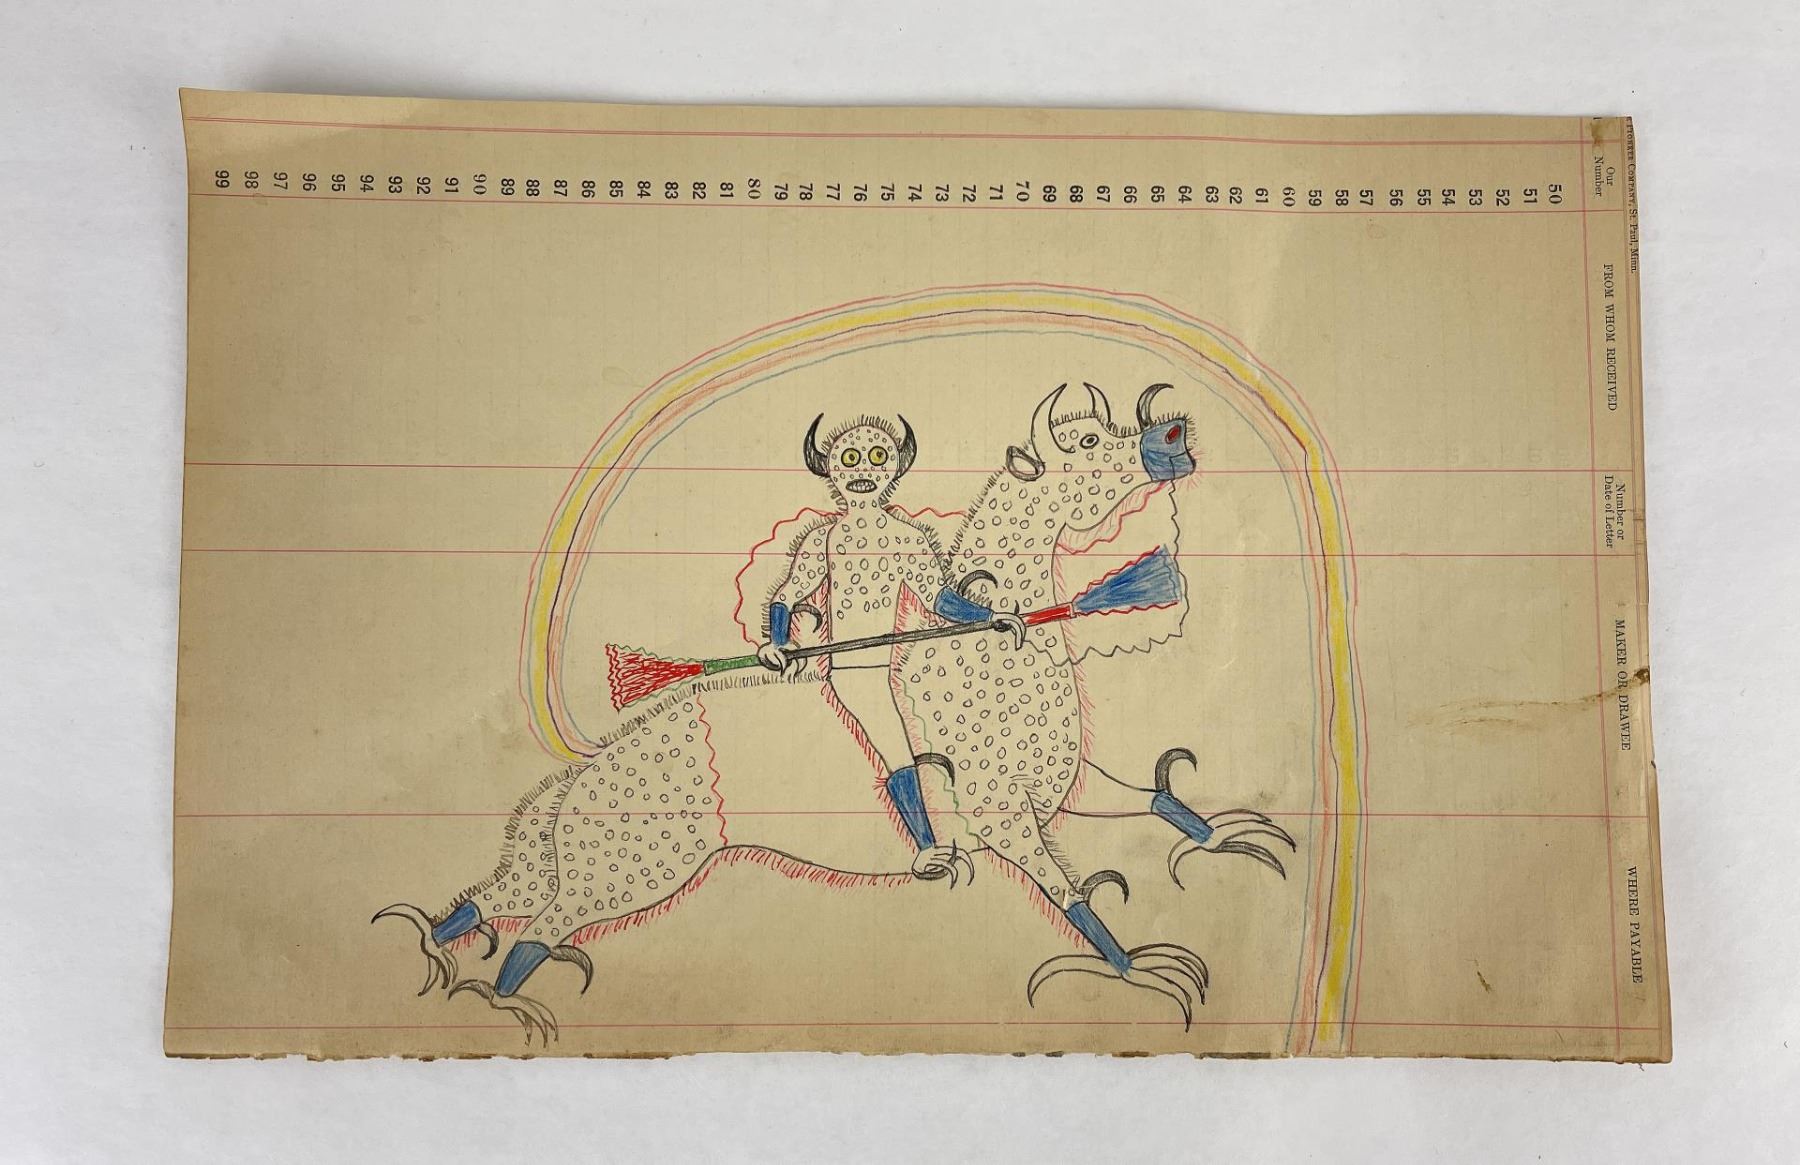 PIONEER COMPANY, St. Paul, Minn.
Our Number
FROM WHOM RECEIVED
Number or Date of Letter
MAKER OR DRAWEE
WHERE PAYABLE
50
51
52
53
54
55
56
57
58
59
60
61
62
63
64
65
66
67
68
69
70
71
72
73
74
75
76
77
78
79
80
81
82
83
84
85
86
87
88
89
90
91
92
93
94
95
96
97
98
99